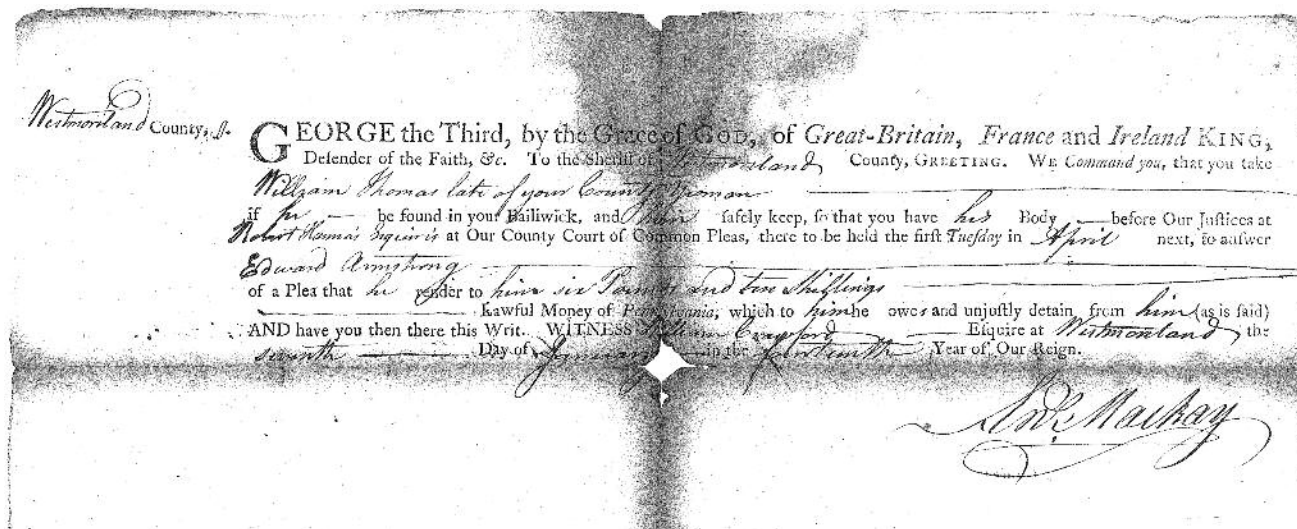 Westmorland County, ss.
GEORGE the Third, by the Grace of GOD, of Great-Britain, France and Ireland KING,
Defender of the Faith, &c. To the Sheriff of Westmorland County, GREETING. WE Command you, that you take
William Thomas late of your County Yeoman
if he be found in your Bailiwick, and him safely keep, so that you have his Body before Our Justices at
Robert Hanna's Esquire is at Our County Court of Common Pleas, there to be held the first Tuesday in April next, to answer
Edward Armstrong
of a Plea that he render to him six Pounds and ten Shillings
Lawful Money of Pennsylvania, which to him he owes and unjustly detain from him (as is said)
AND have you then there this Writ. WITNESS William Crawford Esquire at Westmorland the
seventh Day of January in the fourteenth Year of Our Reign.
Andw. Mackay